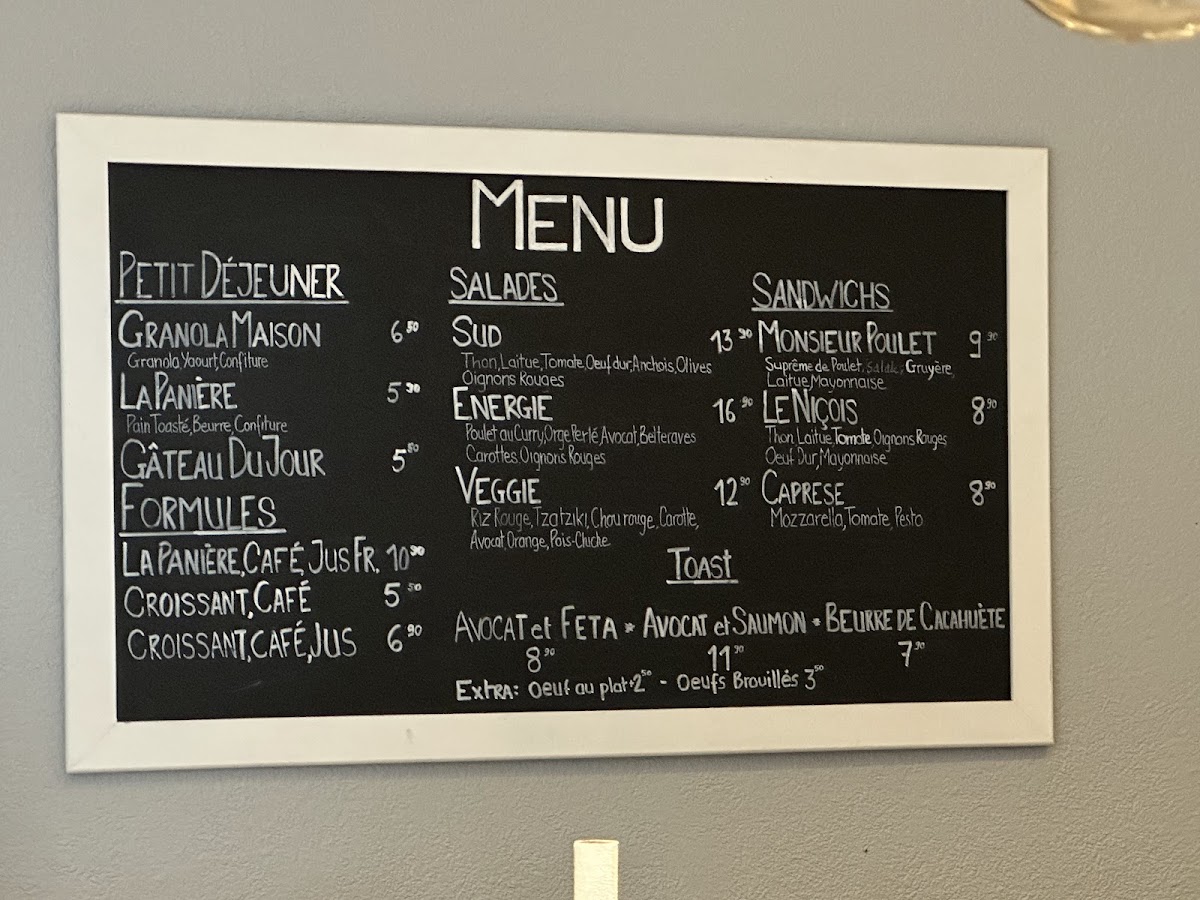 MENU
PETIT DÉJEUNER
GRANOLA MAISON 6.50
Granola, Yaourt, Confiture
LA PANIÈRE 5.90
Pain Toasté, Beurre, Confiture
GÂTEAU DU JOUR 5.50
FORMULES
LA PANIÈRE, CAFÉ, JUS FR. 10.90
CROISSANT, CAFÉ 5.50
CROISSANT, CAFÉ, JUS 6.90
SALADES
SUD 13.90
Thon, Laitue, Tomate, Oeuf dur, Anchois, Olives
Oignons Rouges
ENERGIE 16.90
Poulet au Curry, Orge Perlé, Avocat, Betteraves
Carottes, Oignons Rouges
VEGGIE 12.90
Riz Rouge, Tzatziki, Chou rouge, Carotte,
Avocat, Orange, Pois-Chiche
SANDWICHS
MONSIEUR POULET 9.90
Suprême de Poulet, Gruyère,
Laitue, Mayonnaise
LE NIÇOIS 8.90
Thon, Laitue, Tomate, Oignons Rouges
Oeuf Dur, Mayonnaise
CAPRESE 8.90
Mozzarella, Tomate, Pesto
TOAST
AVOCAT et FETA * AVOCAT et SAUMON * BEURRE DE CACAHUÈTE
8.90 11.90 7.90
EXTRA: Oeuf au plat +2.50 - Oeufs Brouillés 3.50